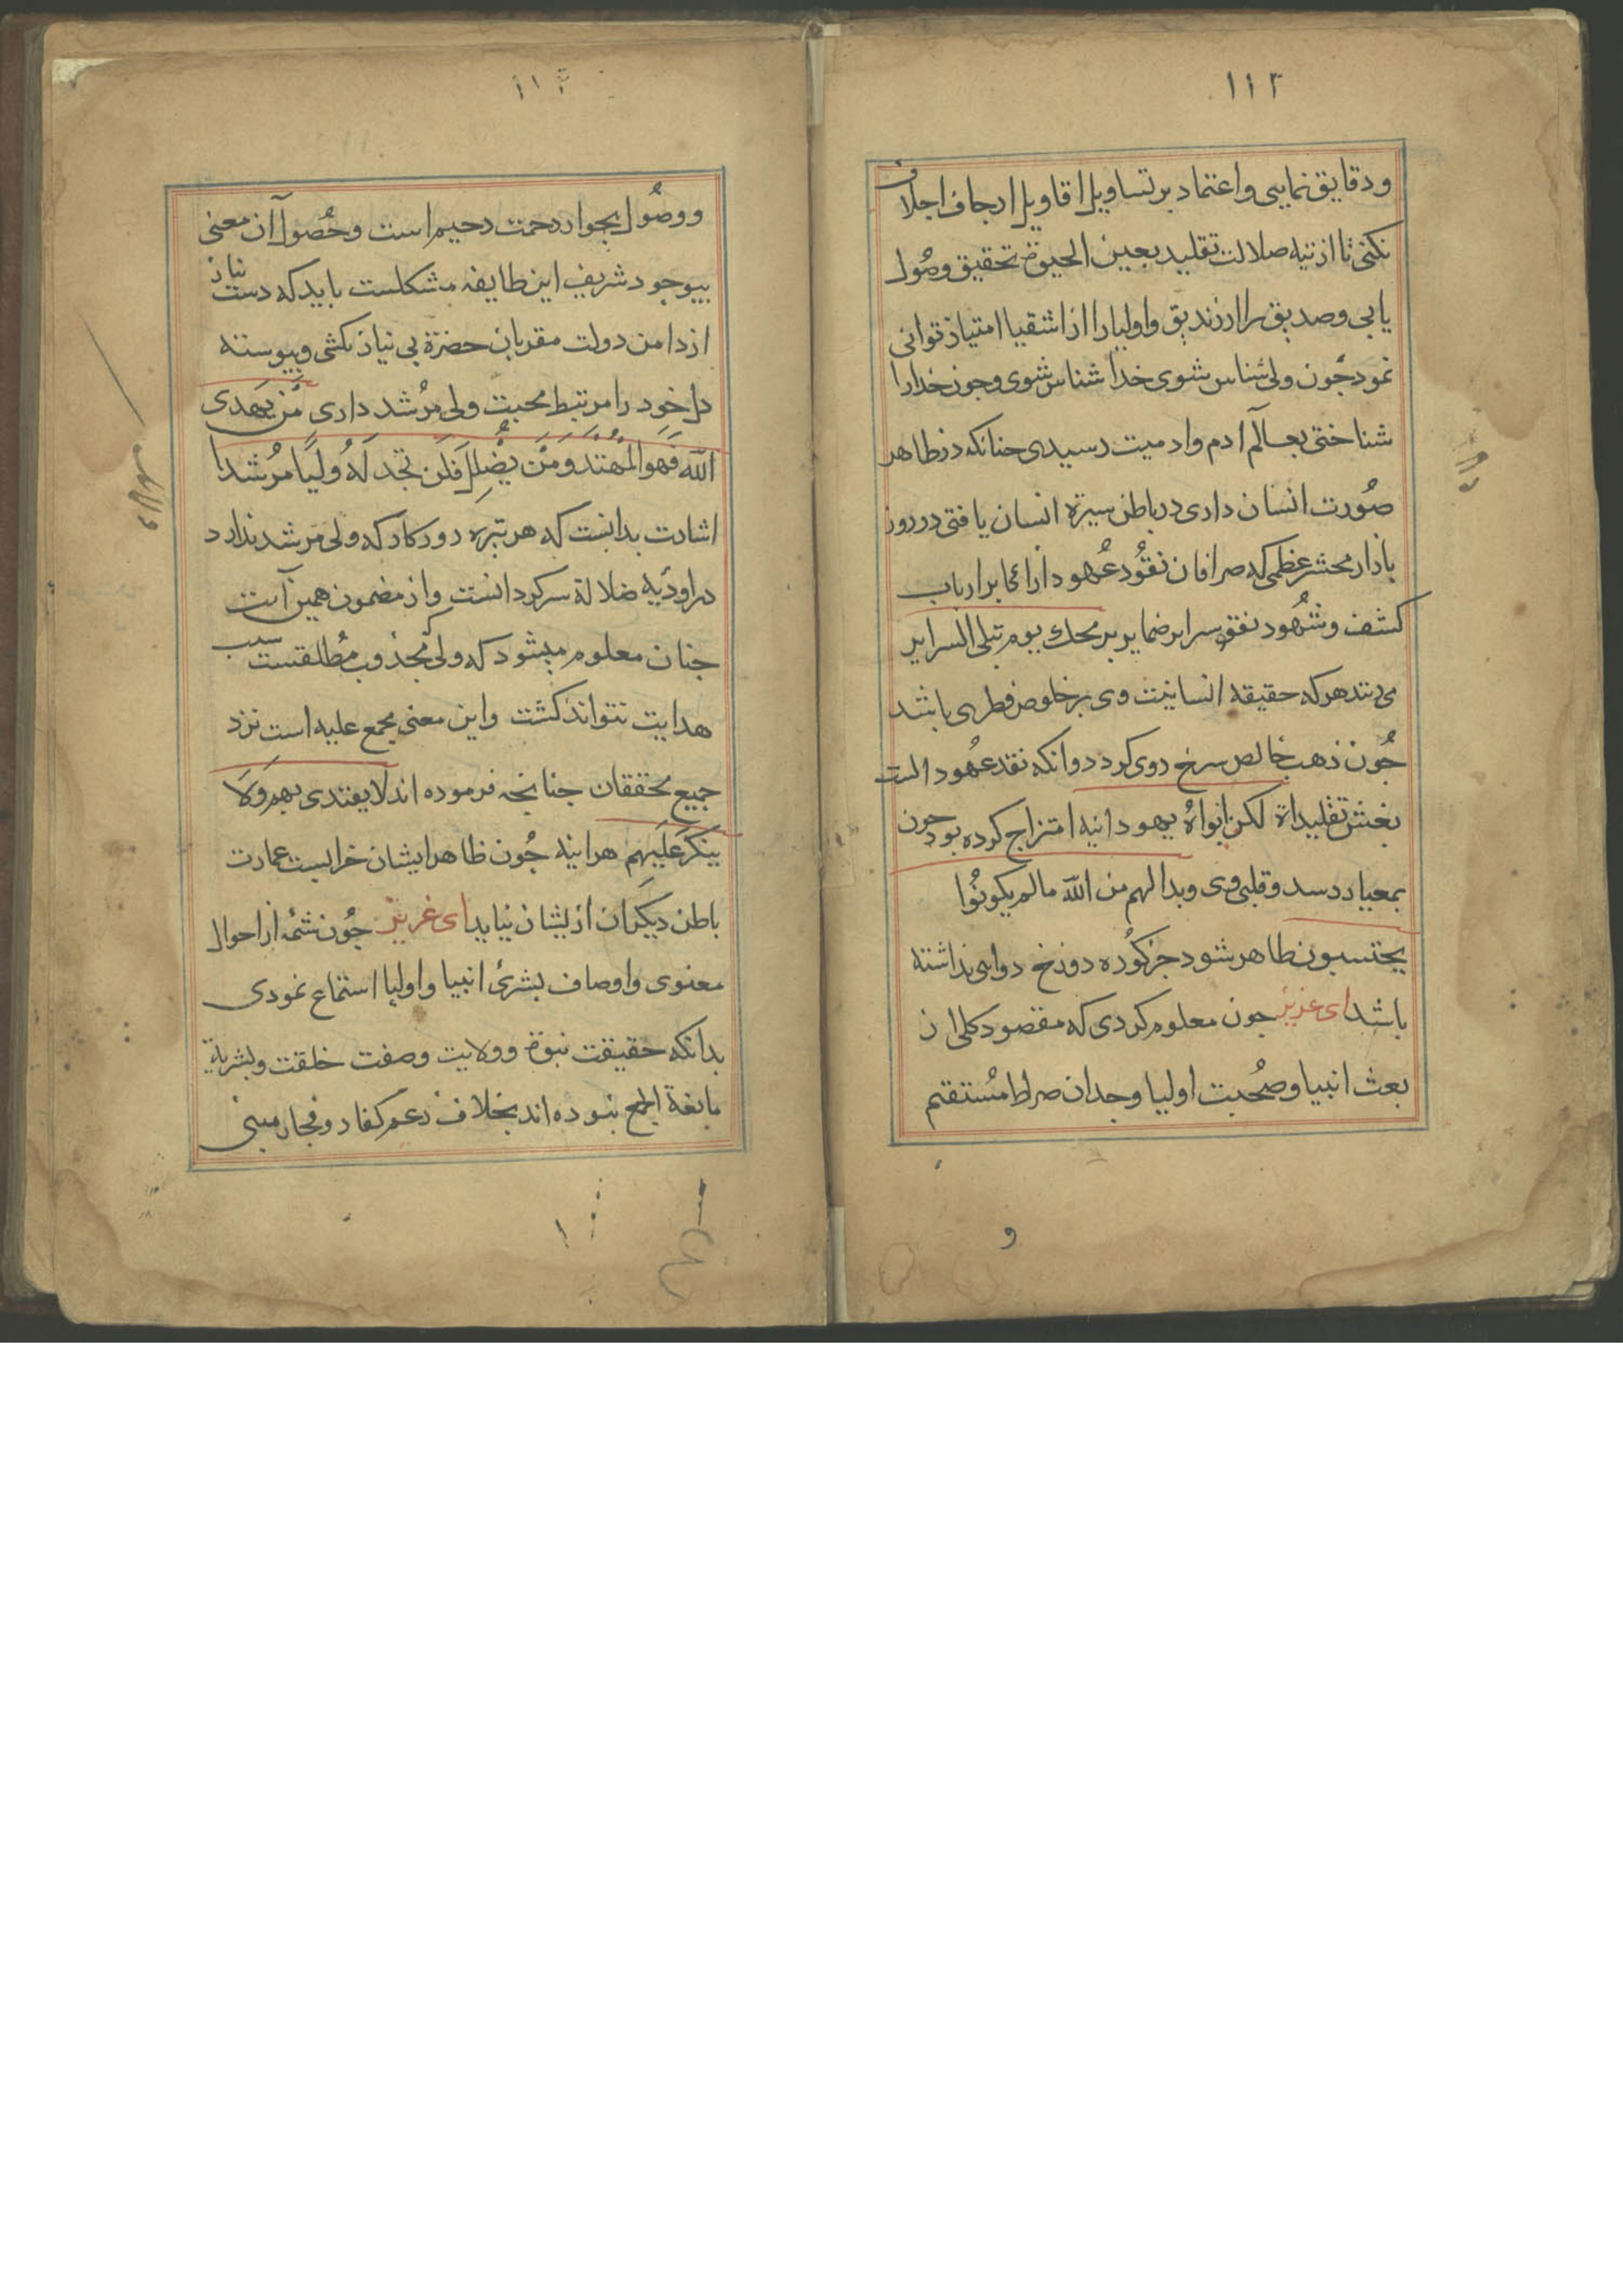 ۱۱۲
ودقایق نمایی واعتماد بر تساویل اقاویل ارجاف اجلاف
نکنی تا از تیه ضلالت تقلید بعین الحیوة تحقیق وصُول
یابی وصدیق را از زندیق واولیا را از اشقیا امتیاز توانی
نمود جُون ولی شناس شوی خدا شناس شوی وجون خدارا
شناختی بعالم ادم وادمیت رسیدی جنانکه در ظاهر
صُورت انسان داری در باطن سیرة انسان یافتی در روز
بازار محشر عظمی که صرافان نقُود عُهود دارائحا بر ارباب
کشف وشُهود نقود سرایر ضمایر بر محك یوم تبلی السرایر
می زنند هر که حقیقه انسانیت وی بر خلوص فطری باشد
جُون ذهب خالص سرخ روی کردد وانکه نقد عُهود الست
بغش تقلیداة لکن ابواهُ یهودانیه امتزاج کرده بود جون
بمعیار رسد وقلبی وی وبدا لهم من الله مالم یکونُوا
یحتسبون ظاهر شود جز کُوره دوزخ دوایی نداشته
باشد ای عزیز جون معلوم کردی که مقصود کلی از
بعث انبیا وصُحبت اولیا وجدان صراط مُستقیم
و
۱۱
ووصُول بجوار رحمت رحیم است وحُصول آن معنی
بیوجود شریف این طایفه مشکلست باید که دست نیاز
از دامن دولت مقربان حضرة بی نیاز نکشی وپیوسته
دل خود را مرتبط محبت ولی مرُشد داری مَن یَهدی
الله فَهوَ المُهتد وَمَن یُضلِل فَلَن تَجد لَهُ ولیًا مُرشدا
اشارت بدانست که هر تیره روزکار که ولی مرشد ندارد
در اودیه ضلالة سرکردانست واز مضمون همین آیت
جنان معلوم میشود که ولی مجذوب مُطلقست سبب
هدایت نتواند کشت واین معنی مجمع علیه است نزد
جمیع محققان جنانجه فرموده اند لا یقتدی بهم وَلا
ینکَر عَلَیهم هراینه جُون ظاهر ایشان خرابست عمارت
باطن دیکران از یشان نیاید ای عزیز جُون شمهٔ از احوال
معنوی واوصاف بشری انبیا واولیا استماع نمودی
بدانکه حقیقت نبوة وولایت وصفت خلقت وبشریة
مانعة الجمع نبوده اند بخلاف زعم کفار وفجار مبنی